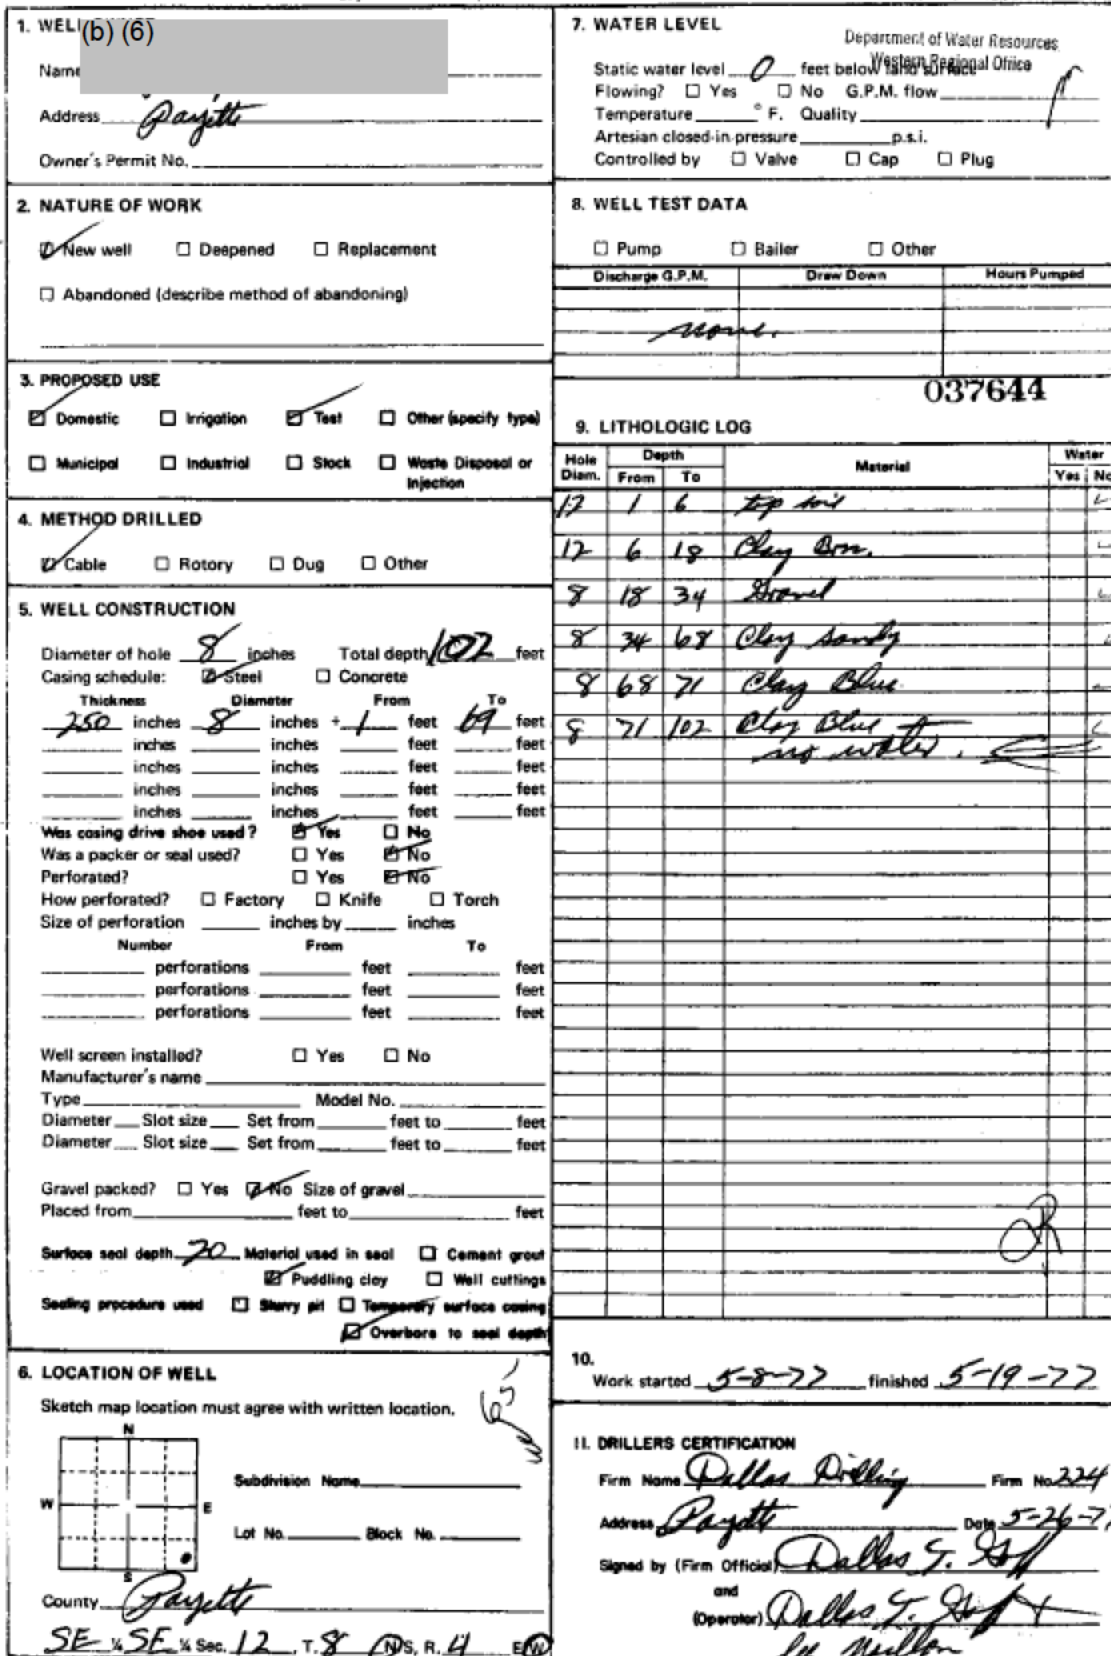 1. WELL
(b) (6)
Name
Address Payette
Owner's Permit No.
2. NATURE OF WORK
New well Deepened Replacement
Abandoned (describe method of abandoning)
3. PROPOSED USE
Domestic Irrigation Test Other (specify type)
Municipal Industrial Stock Waste Disposal or
Injection
4. METHOD DRILLED
Cable Rotory Dug Other
5. WELL CONSTRUCTION
Diameter of hole 8 inches Total depth 102 feet
Casing schedule: Steel Concrete
Thickness Diameter From To
.250 inches 8 inches + 1 feet 69 feet
inches inches feet feet
inches inches feet feet
inches inches feet feet
inches inches feet feet
Was casing drive shoe used? Yes No
Was a packer or seal used? Yes No
Perforated? Yes No
How perforated? Factory Knife Torch
Size of perforation inches by inches
Number From To
perforations feet feet
perforations feet feet
perforations feet feet
Well screen installed? Yes No
Manufacturer's name
Type Model No.
Diameter Slot size Set from feet to feet
Diameter Slot size Set from feet to feet
Gravel packed? Yes No Size of gravel
Placed from feet to feet
Surface seal depth 20 Material used in seal Cement grout
Puddling clay Well cuttings
Sealing procedure used Slurry pit Temporary surface casing
Overbore to seal depth
6. LOCATION OF WELL
Sketch map location must agree with written location.
N
W E
S
Subdivision Name
Lot No. Block No.
County Payette
SE ¼ SE ¼ Sec. 12, T. 8 N/S, R. 4 E/W
7. WATER LEVEL
Department of Water Resources
Western Regional Office
Static water level 0 feet below land surface
Flowing? Yes No G.P.M. flow
Temperature ° F. Quality
Artesian closed-in pressure p.s.i.
Controlled by Valve Cap Plug
8. WELL TEST DATA
Pump Bailer Other
Discharge G.P.M. Draw Down Hours Pumped
none.
037644
9. LITHOLOGIC LOG
Hole Diam. Depth From To Material Water Yes No
12 1 6 top soil
12 6 18 Clay Brn.
8 18 34 Gravel
8 34 68 Clay Sandy
8 68 71 Clay Blue
8 71 102 Clay Blue
no water.
10.
Work started 5-8-77 finished 5-19-77
11. DRILLERS CERTIFICATION
Firm Name Dallas Drilling Firm No. 224
Address Payette Date 5-26-77
Signed by (Firm Official) Dallas T.
and
(Operator) Dallas T.